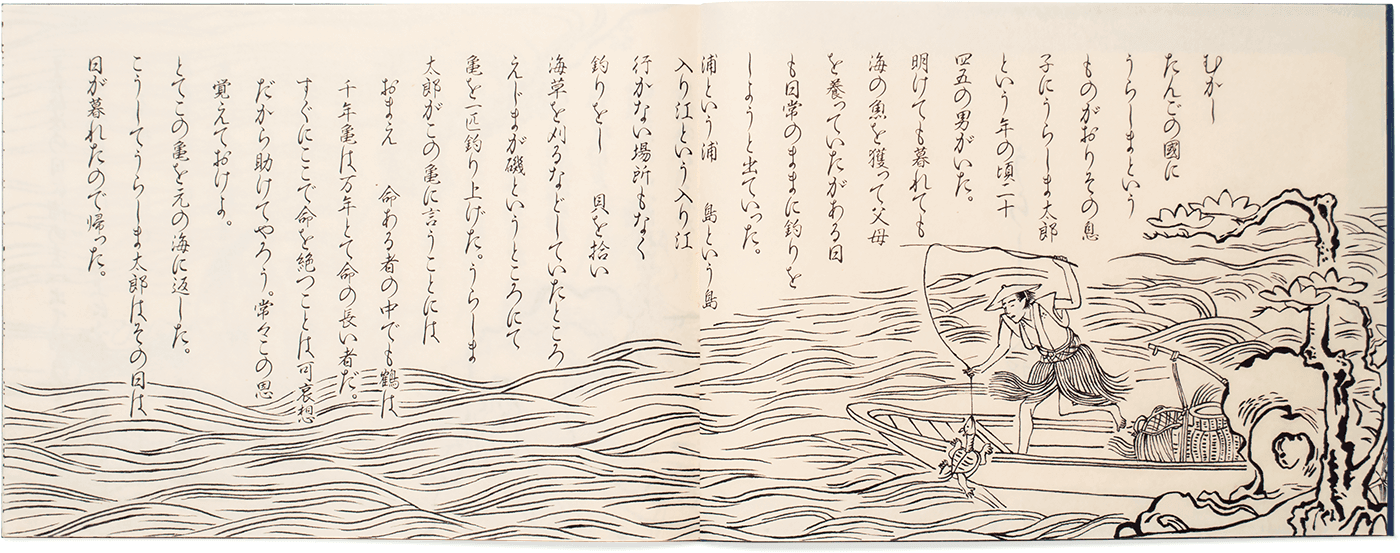 むかし
たんごの國に
うらしまという
ものがおりその息
子にうらしま太郎
という年の頃二十
四五の男がいた。
明けても暮れても
海の魚を獲って父母
を養っていたがある日
も日常のままに釣りを
しようと出ていった。
浦という浦　島という島
入り江という入り江
行かない場所もなく
釣りをし　貝を拾い
海草を刈るなどしていたところ
えじまが磯というところにて
亀を一匹釣り上げた。うらしま
太郎がこの亀に言うことには
おまえ　命ある者の中でも鶴は
千年亀は万年とて命の長い者だ。
すぐにここで命を絶つことは可哀想
だから助けてやろう。常々この恩
覚えておけよ。
とてこの亀を元の海に返した。
こうしてうらしま太郎はその日は
日が暮れたので帰った。